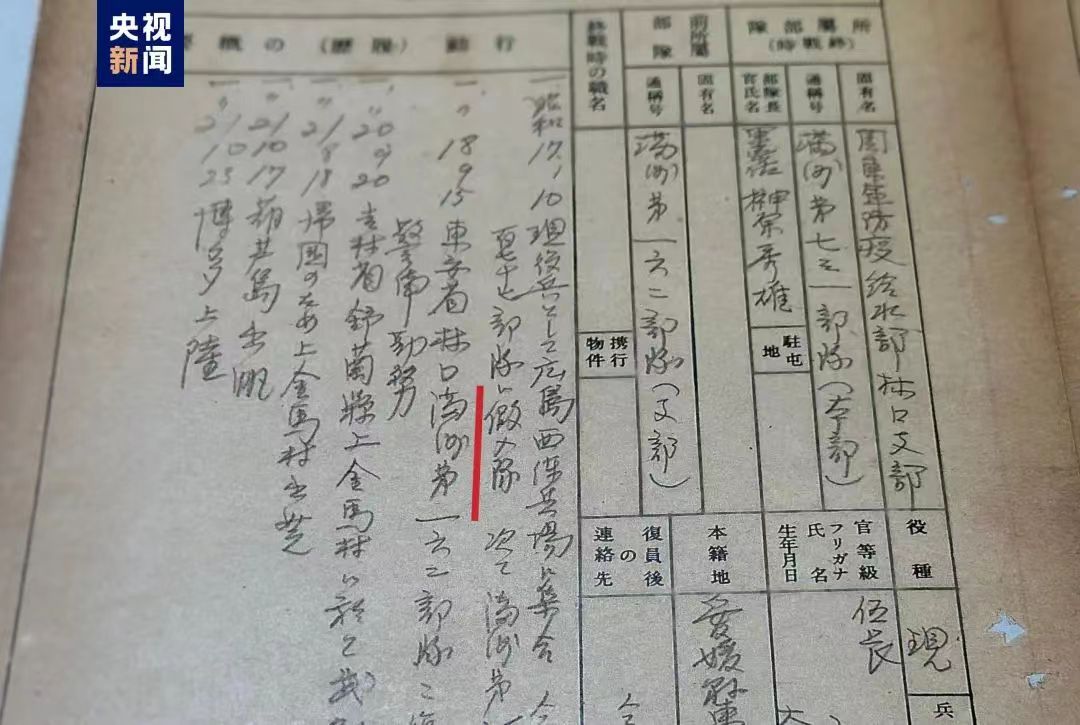 央视
新闻
所属部隊
(終戦時)
固有名
関東軍防疫給水部林口支部
通稱号
満洲第七三一部隊(本部)
部隊長
官氏名
榊原秀雄
駐屯
地
前所属
部隊
固有名
通稱号
満洲第一六二部隊(支部)
終戦時の職名
携行
物件
役種
現
兵
官等級
伍長
フリガナ
氏名
生年月日
本籍地
愛媛縣
復員後
の
連絡先
行動(履歴)の概要
一 昭和17、10 現役兵として広島西練兵場に集合
部隊に假入隊 次で満洲第
一 〃 18 9 15 東安省林口満洲第一六二部隊
警備勤務
一 〃 20 9 20 吉林省舒蘭縣上金馬村に於て
一 〃 21 8 18 帰国のため上金馬村出発
一 〃 21 10 17 葫芦島出帆
一 〃 21 10 23 博多上陸